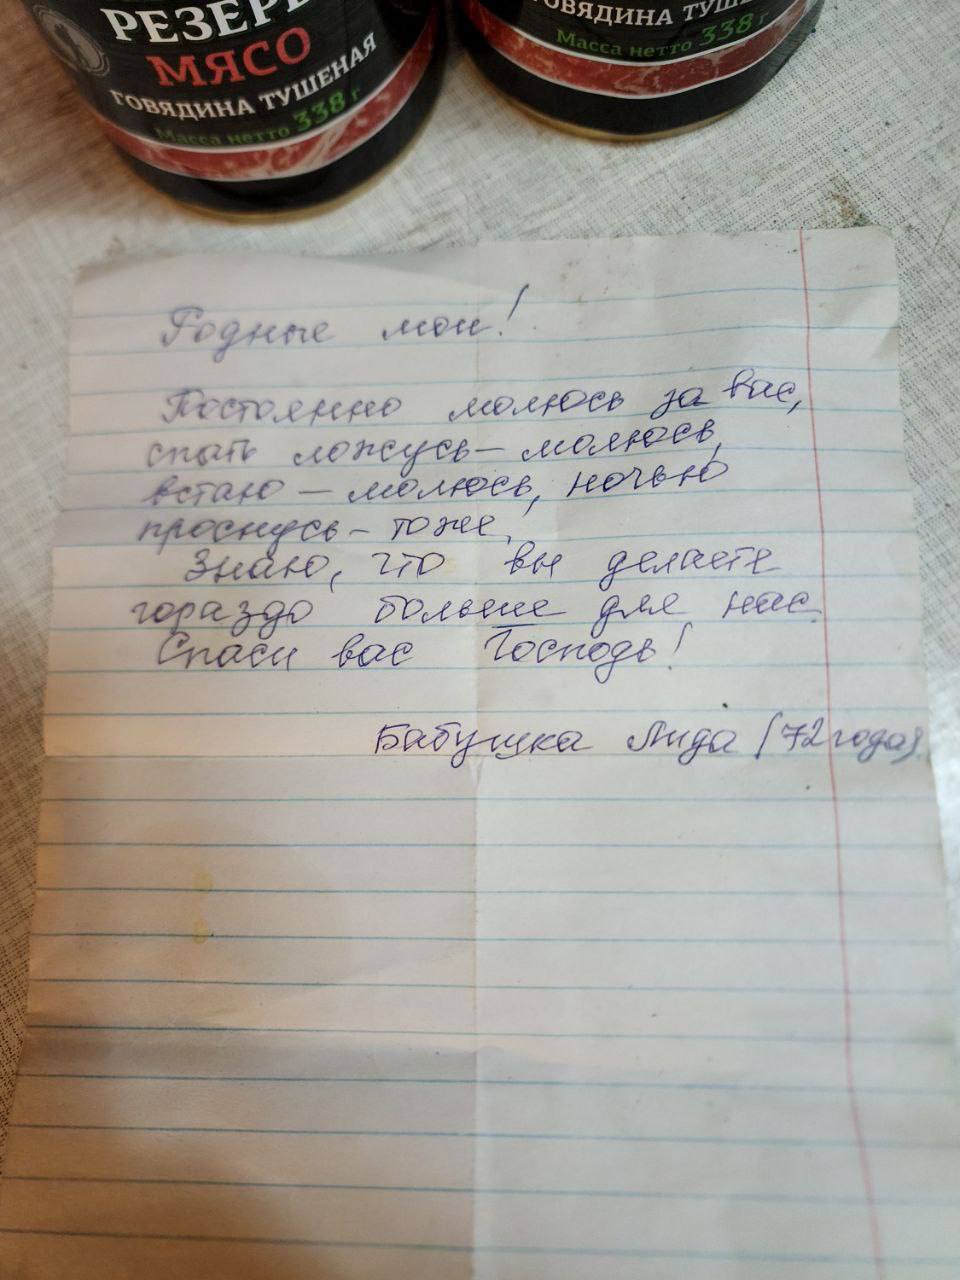 РЕЗЕРВ
МЯСО
ГОВЯДИНА ТУШЕНАЯ
Масса нетто 338 г
ГОВЯДИНА ТУШЕ
Масса нетто 338 г
Родные мои!
Постоянно молюсь за вас,
спать ложусь – молюсь,
встаю – молюсь, ночью
проснусь – тоже.
Знаю, что вы делаете
гораздо больше для нас.
Спаси вас Господь!
Бабушка Лида (72 года).